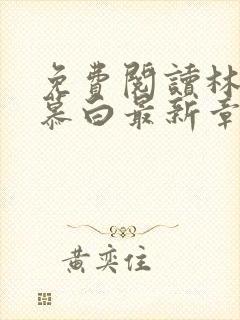 免費閱讀林
慕白最新章
黃奕住